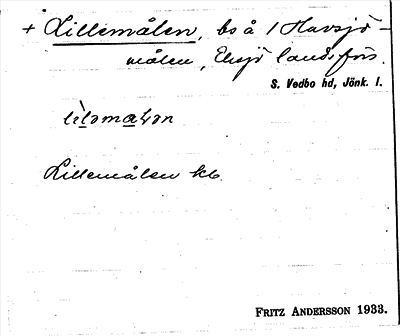 + Lillemålen, bs å 1 Havsjö-
målen, Eksjö landsförs.
S. Vedbo hd, Jönk. l.
Lillemålen kb.
FRITZ ANDERSSON 1933.